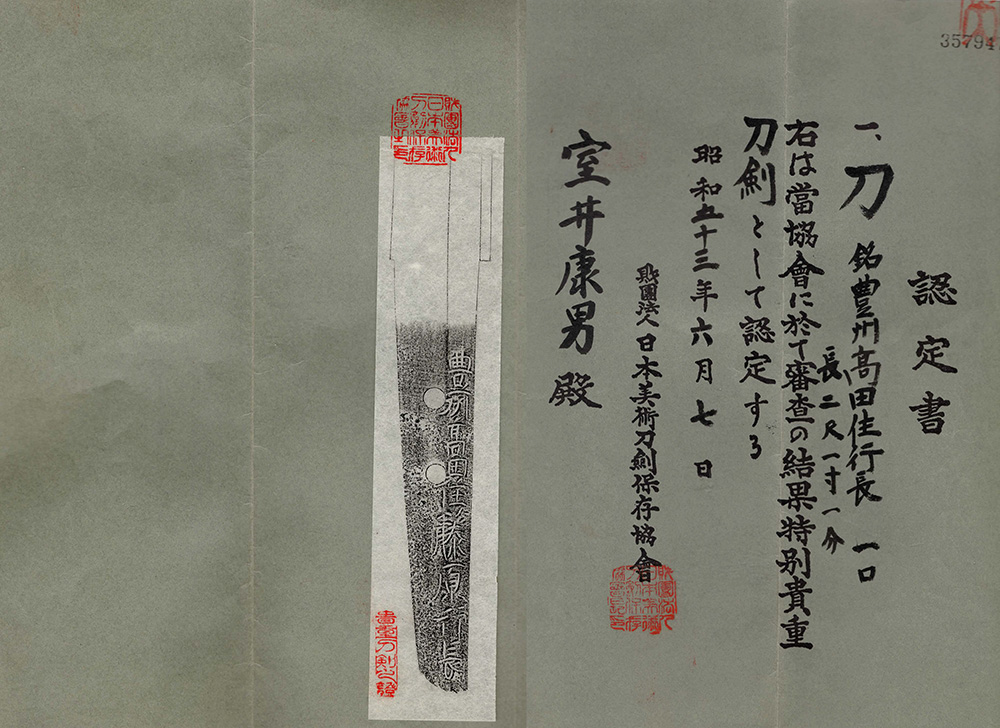 35794
認定書
一、刀 銘豊州高田住行長 一口
長二尺一寸一分
右は當協會に於て審査の結果特別貴重
刀剣として認定する
昭和五十三年六月七日
財團法人日本美術刀剣保存協會
室井康男殿
財團法人日本美術刀剣保存協會之印
豊州高田住藤原行長
貴重刀剣之證